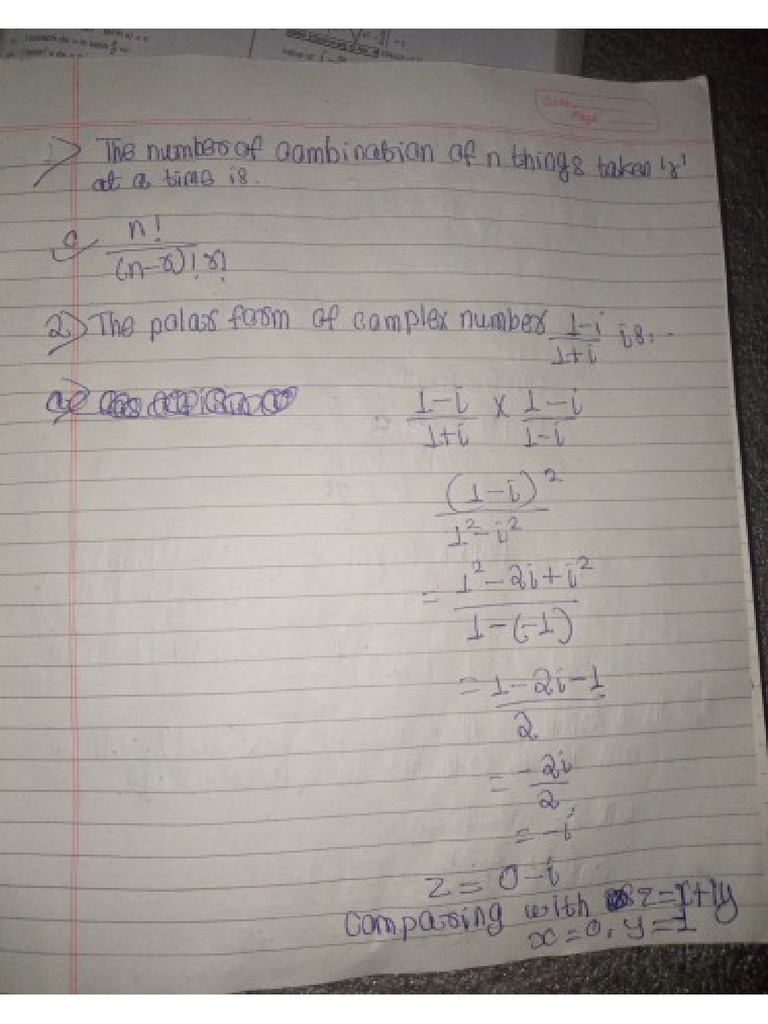 Date
Page
1) The number of combination of n things taken 'r'
at a time is.
n!
(n-r)! r!
2) The polar form of complex number 1-i/1+i is.-
a)
1-i/1+i × 1-i/1-i
(1-i)²
1²-i²
= 1²-2i+i²
1-(-1)
= 1-2i-1
2
= -2i
2
= -i
z = 0-i
comparing with z=x+iy
x=0, y=1